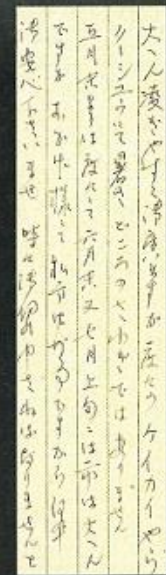 大へん凌ぎやすく御座いますが 度々の ケイカイ やら
クーシューにて 暑さ どころの さわぎでは ありません
五月末 は 度々にて 六月末 又 七月上旬には 市は 大へん
でした おかげ様にて 私方は ぶじ ですから 何卒
御安心下さい ませ 時に ればなりませんと